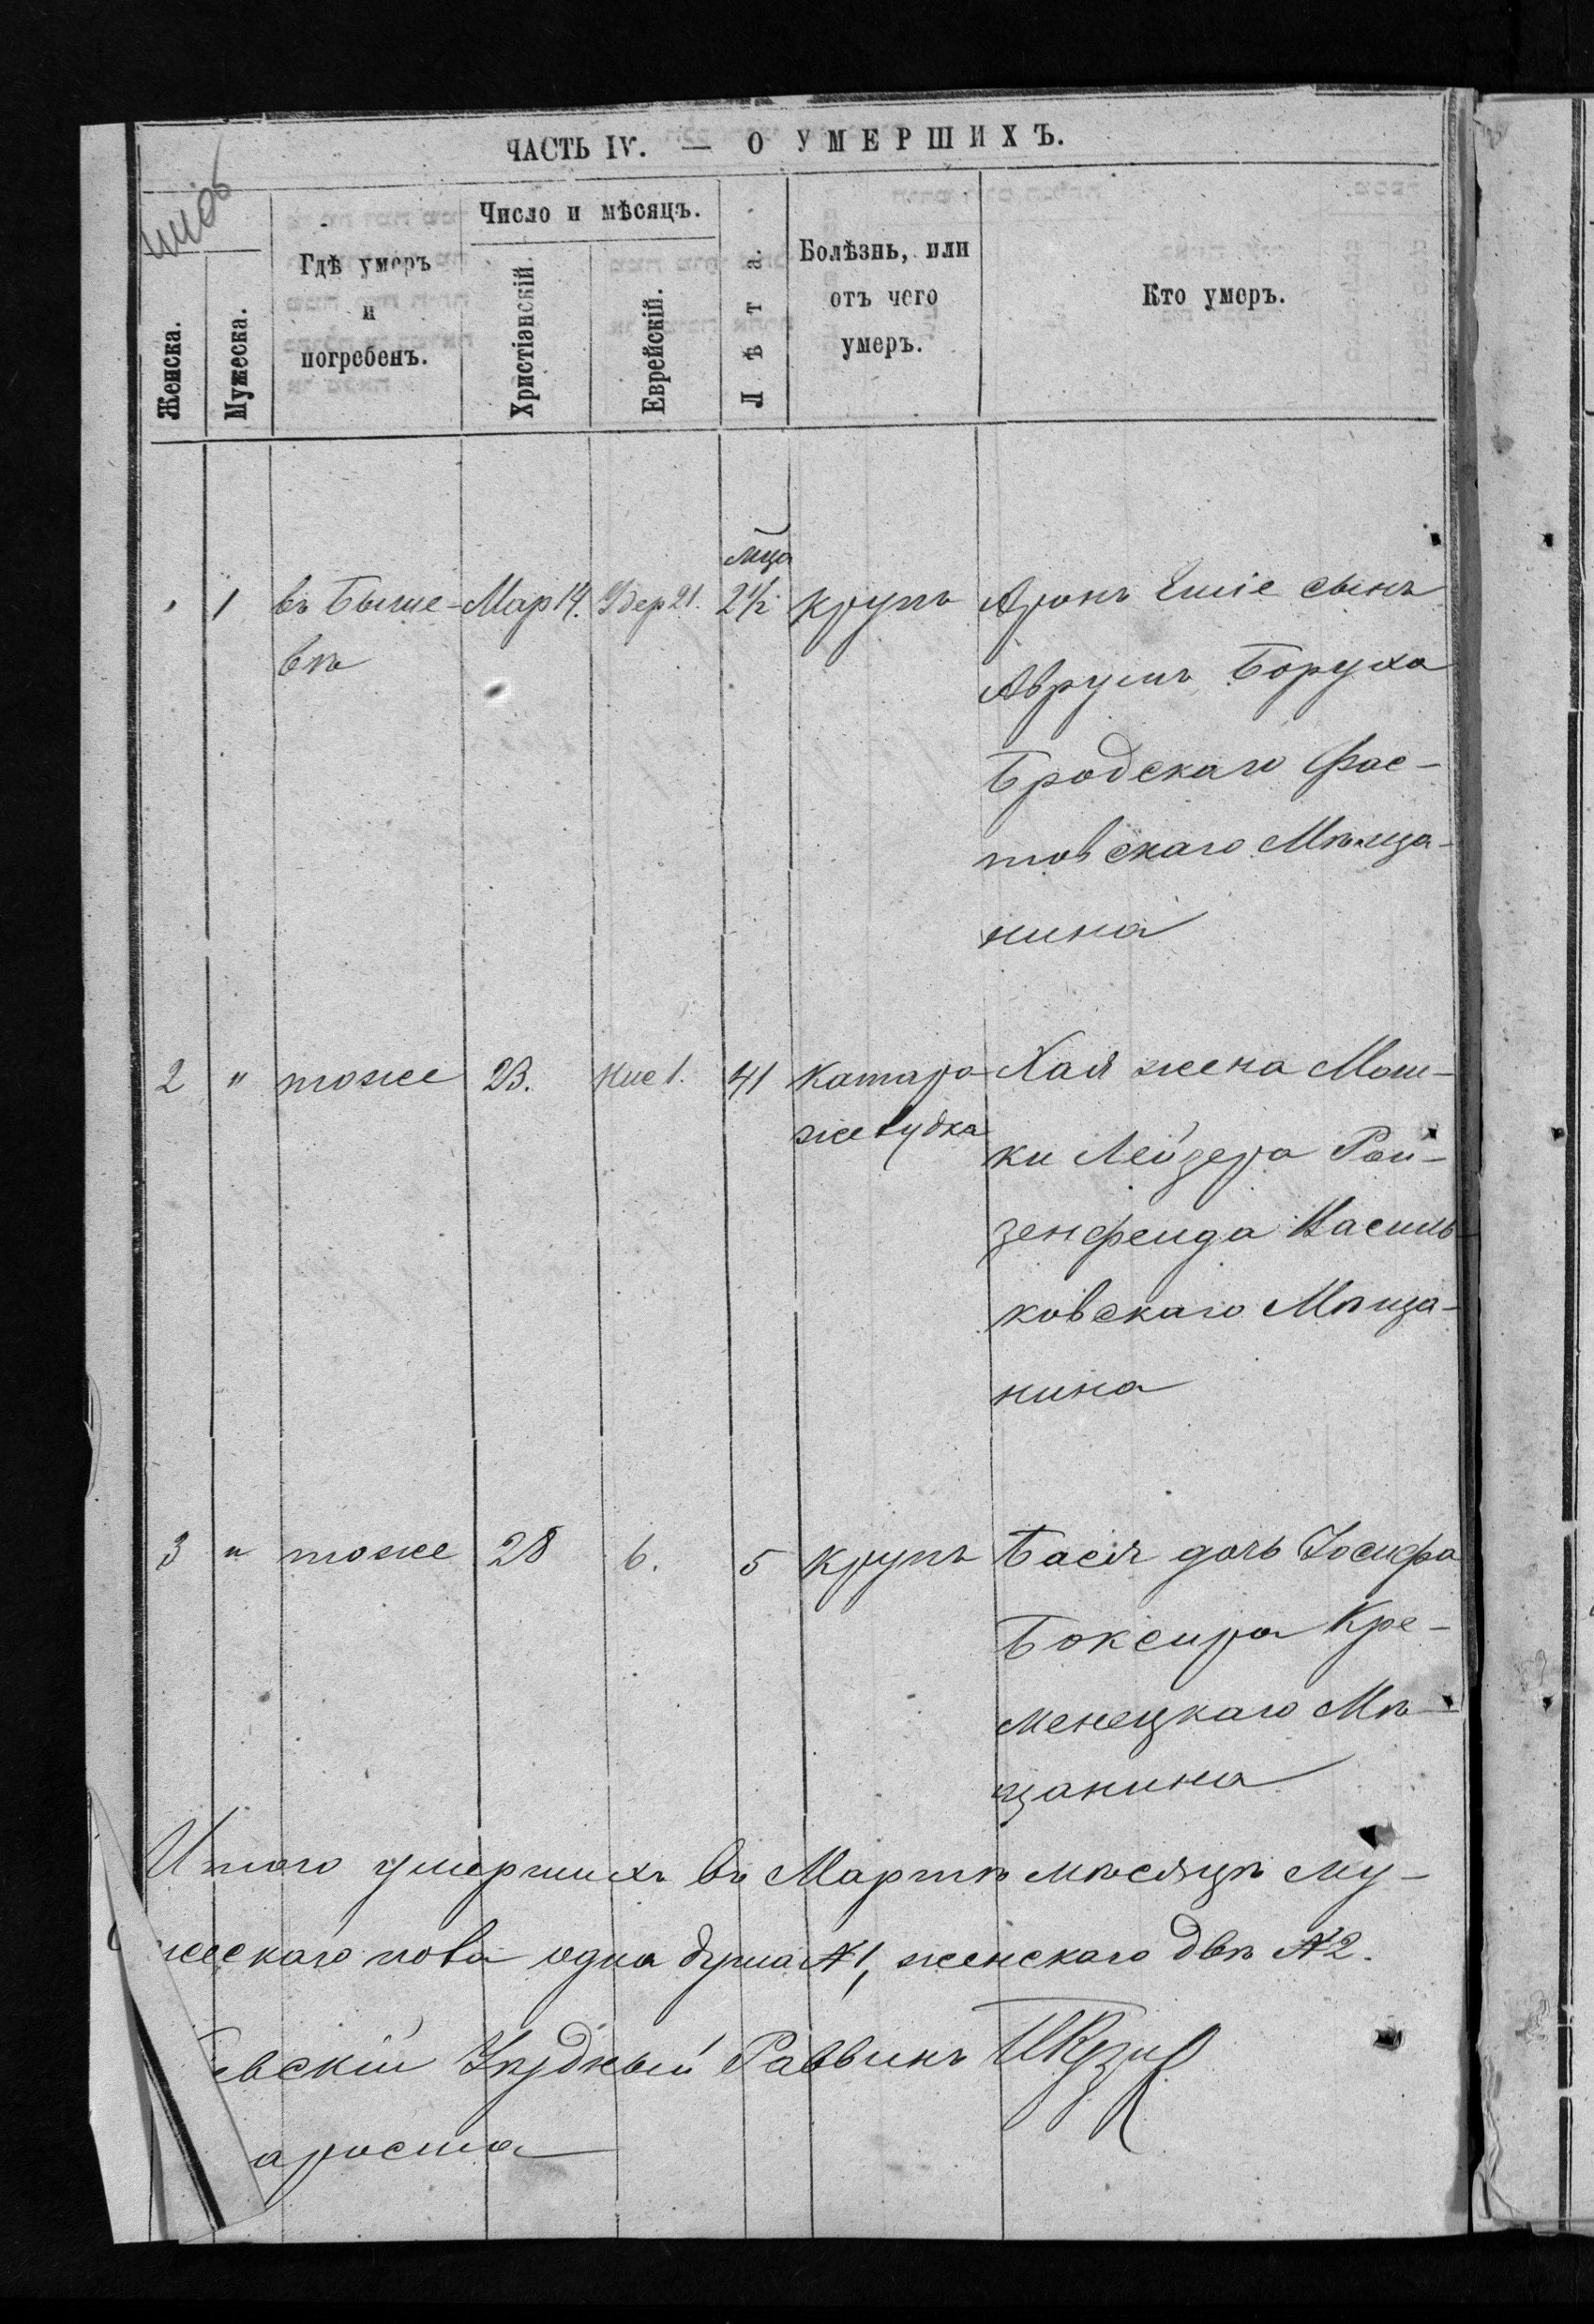 ЧАСТЬ IV. — О УМЕРШИХЪ.
Женска.
Мужеска.
Гдѣ умеръ
и
погребенъ.
Число и мѣсяцъ.
Христіанскій.
Еврейскій.
Лѣта.
Болѣзнь, или
отъ чего
умеръ.
Кто умеръ.
мца
1 въ Быше- Мар 14. Адер 21. 2½ крупъ Аронъ Ешіе сынъ
вѣ
Аврумъ Боруха
Бродскаго Фас-
товскаго Мѣща-
нина
2 " тоже 23. Нис 1. 41 катара Хая жена Мош-
желудка
ки Лейзера Рой-
зенфелда Василь-
ковскаго Мѣща-
нина
3 " тоже 28 6. 5 крупъ Бася дочь Іосифа
Боксира Кре-
менецкаго Мѣ-
щанина
Итого умершихъ въ Мартѣ мѣсяцѣ му-
жескаго пола одна душа №1, женскаго двѣ №2.
евскій Уѣздный Раввинъ
ароста